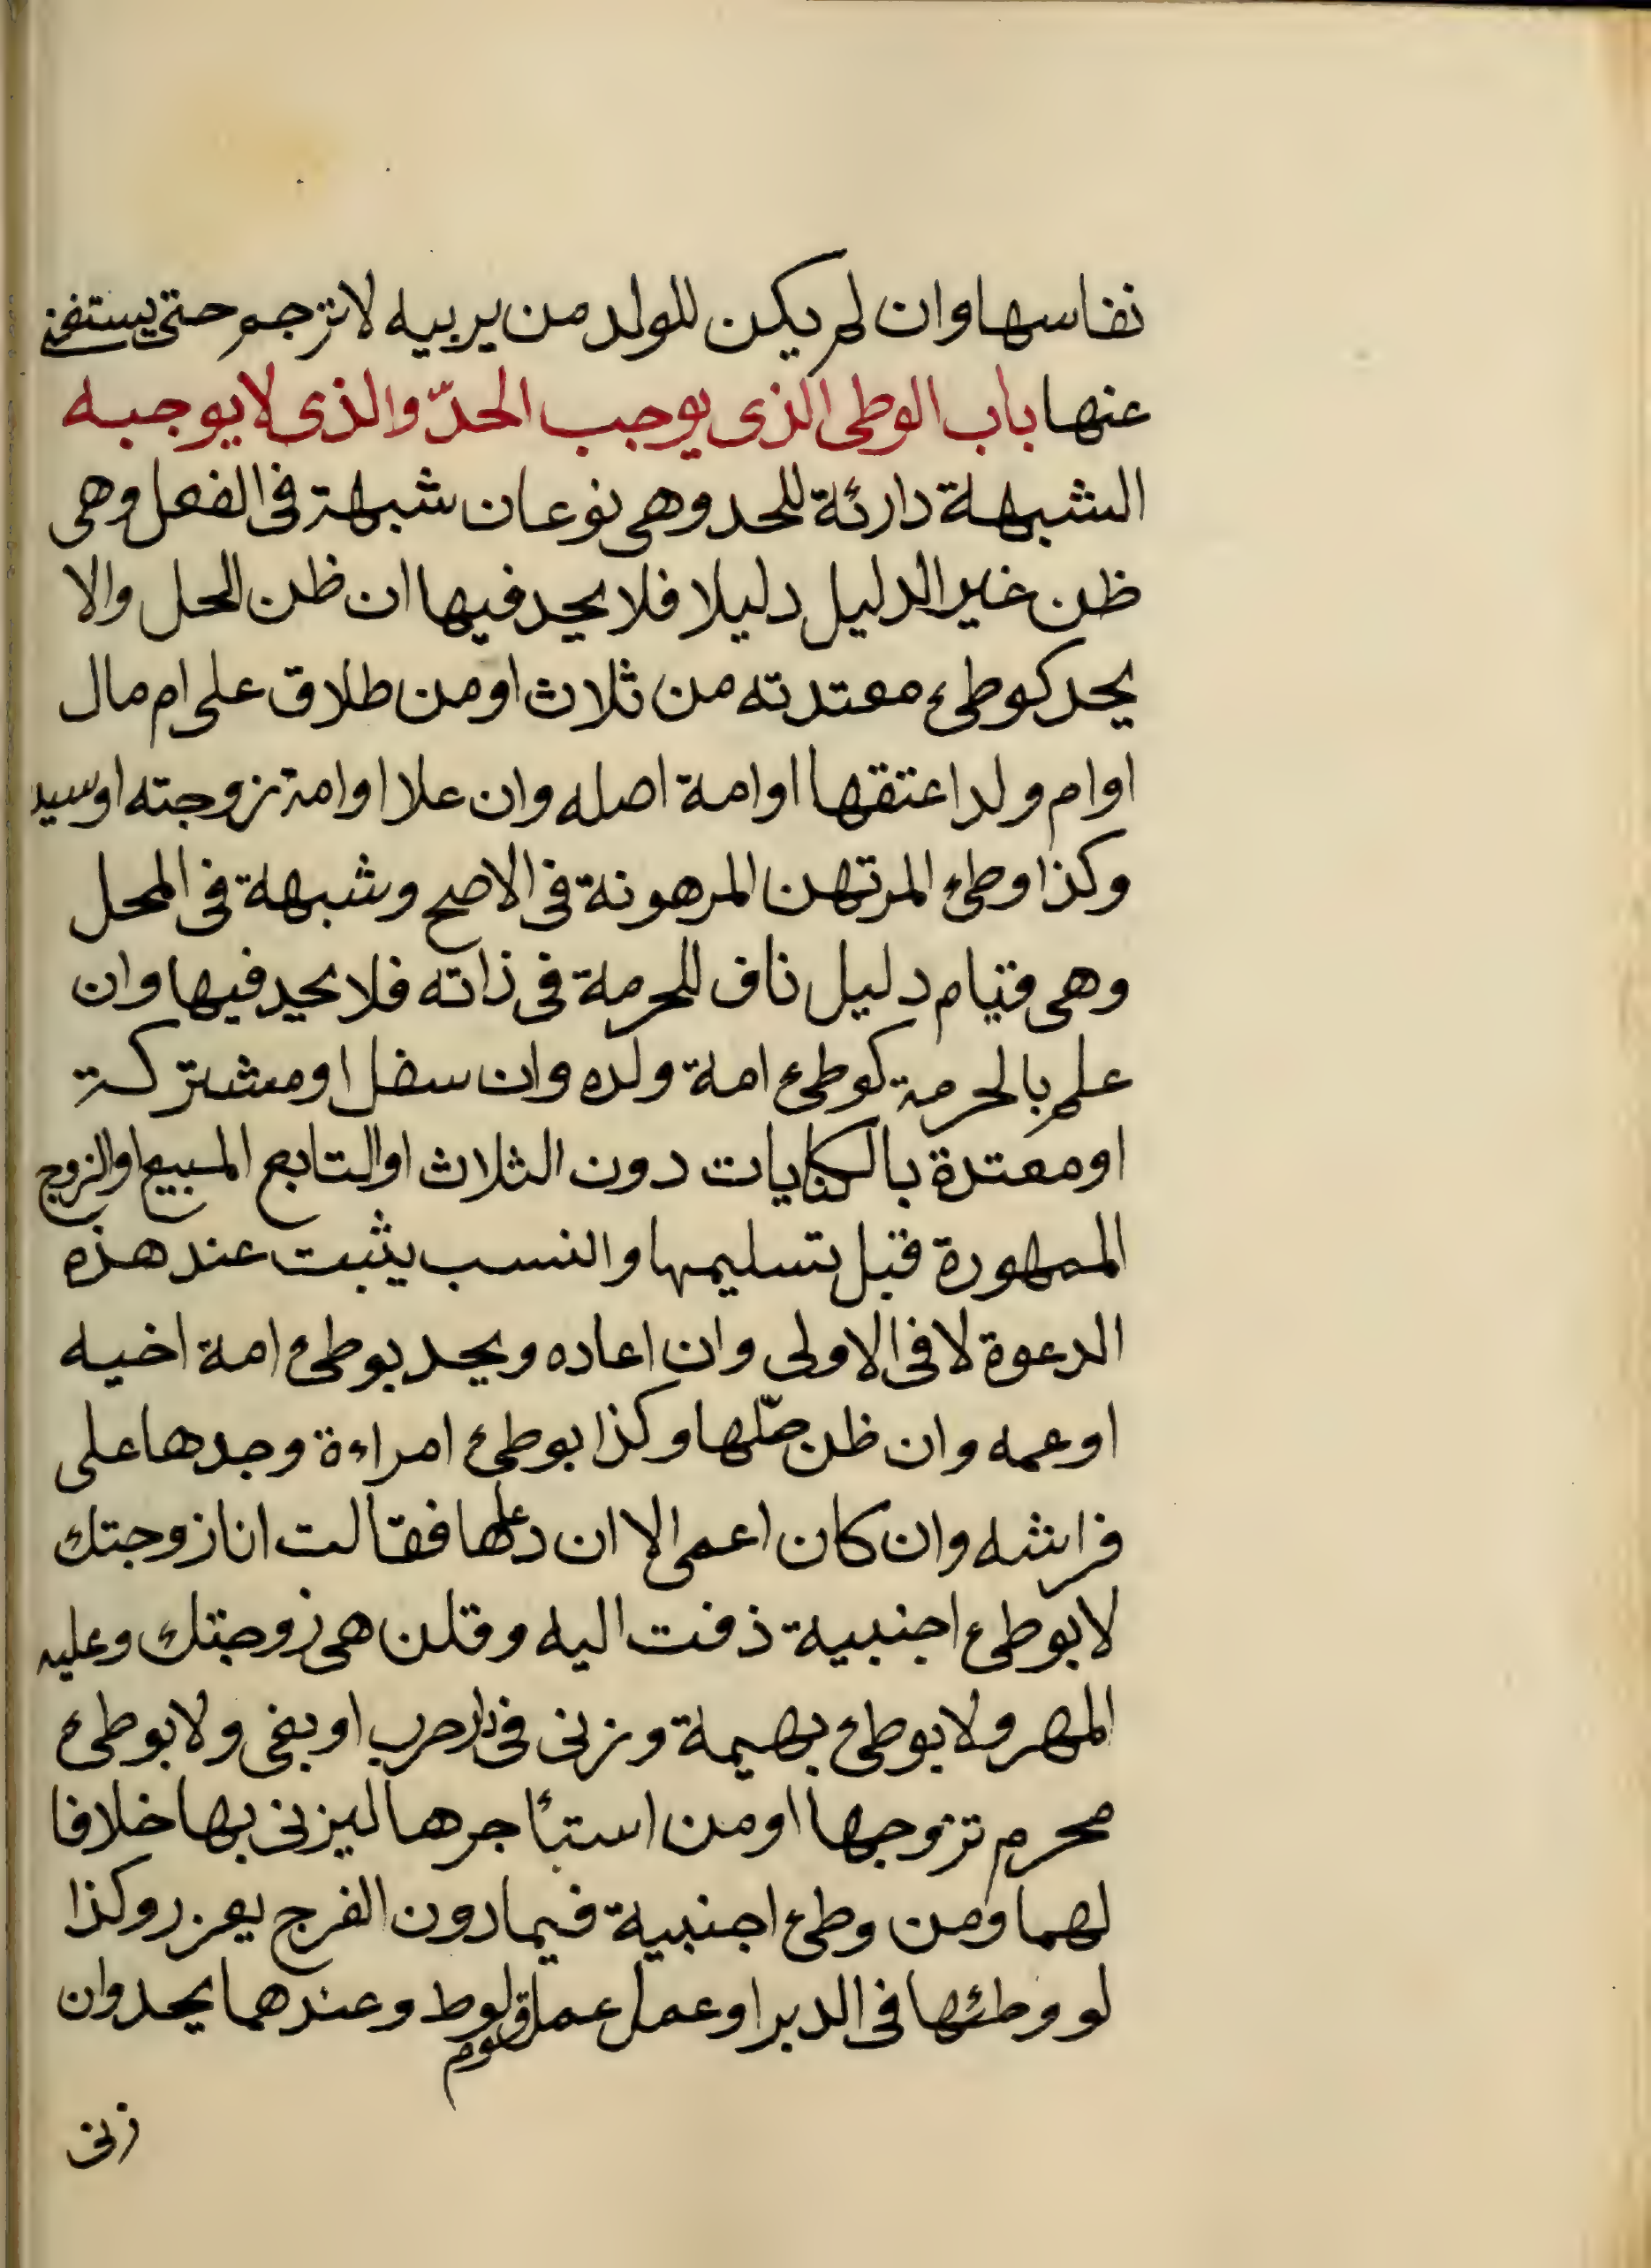 نفاسها وان لم يكن للولد من يربيه لا ترجم حتى يستغنى
عنها باب الوطئ الذى يوجب الحدّ والذى لا يوجبه
الشبهة دارئة للحد وهى نوعان شبهة فى الفعل وهى
ظن غير الدليل دليلا فلا يحد فيها ان ظن الحل والا
يحد كوطئ معتدته من ثلاث او من طلاق على ام مال
او ام ولد اعتقها او امة اصله وان علا او امة زوجته او سيد
وكذا وطئ المرتهن المرهونة فى الاصح وشبهة فى المحل
وهى قيام دليل ناف للحرمة فى ذاته فلا يحد فيها وان
علم بالحرمة كوطئ امة ولده وان سفل او مشتركة
او معتدة بالكنايات دون الثلاث او التابع المبيع او الزوج
الممهورة قبل تسليمها والنسب يثبت عند هذه
الدعوة لا فى الاولى وان اعاده ويحد بوطئ امة اخيه
او عمه وان ظن حلّها وكذا بوطئ امراءة وجدها على
فراشه وان كان اعمى الا ان دعاها فقالت انا زوجتك
لا بوطئ اجنبية زفت اليه وقلن هى زوجتك وعليه
المهر ولا بوطئ بهيمة وزنى فى دار حرب او بغى ولا بوطئ
محرم تزوجها او من استأجرها ليزنى بها خلافا
لهما ومن وطئ اجنبية فيما دون الفرج يعزر وكذا
لو وطئها فى الدبر او عمل عمل قوم لوط وعندهما يحد وان
زنى